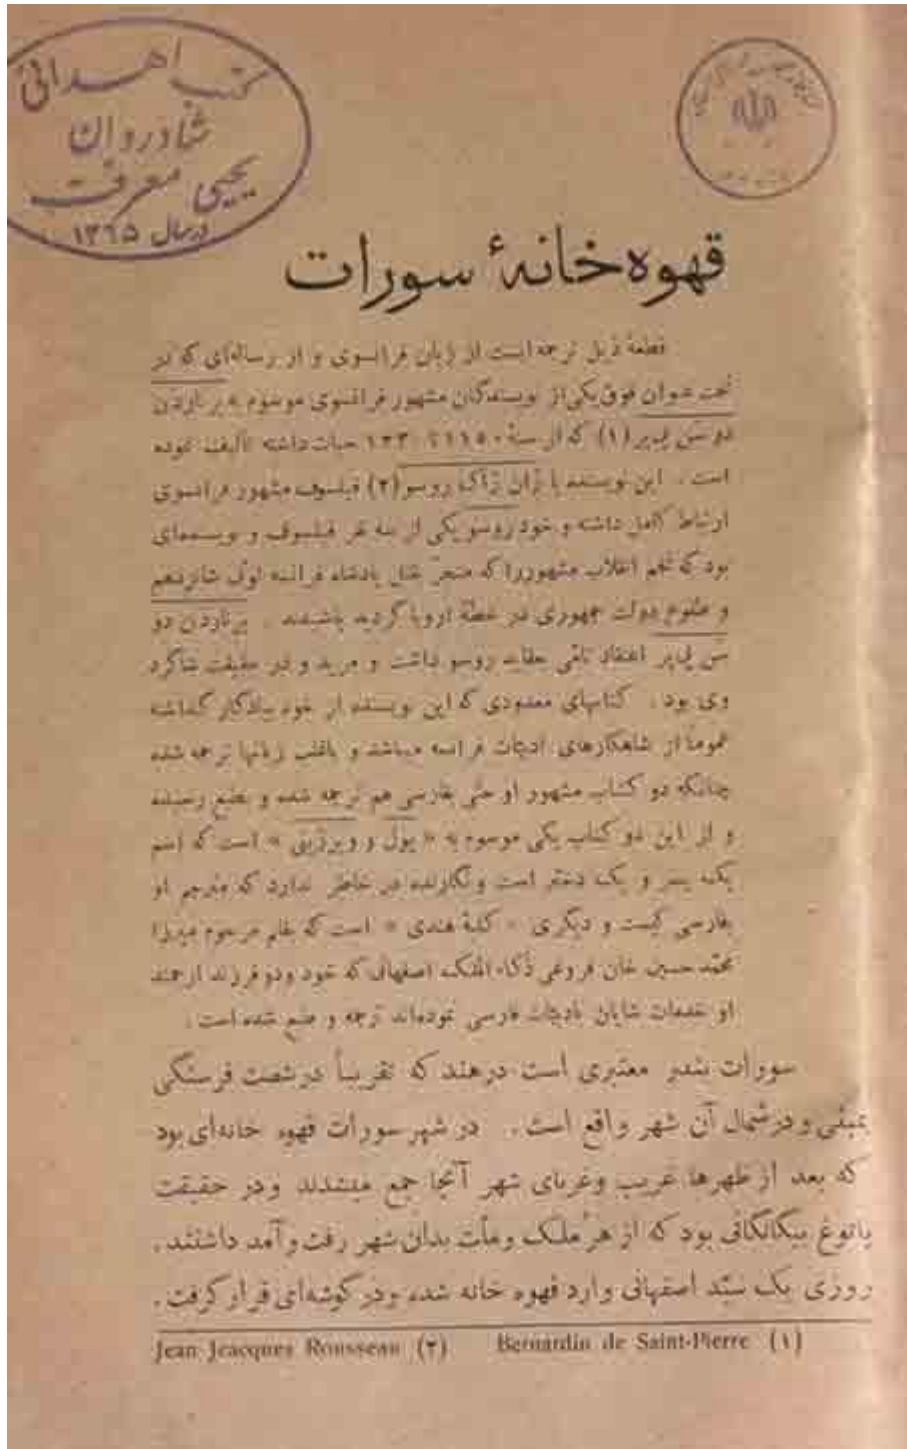 کتب اهدائی
شادروان
یحیی معرفت
در سال ۱۳۶۵
قهوه‌خانهٔ سورات
قطعهٔ ذیل ترجمه است از زبان فرانسوی و از رساله‌ای که در
تحت عنوان فوق یکی از نویسندگان مشهور فرانسوی موسوم به برناردن
دو سن پیر (۱) که از سنهٔ ۱۱۵۰ تا ۱۲۳۰ حیات داشته تألیف نموده
است . این نویسنده با ژان ژاک روسو (۲) فیلسوف مشهور فرانسوی
ارتباط کامل داشته و خود روسو یکی از سه نفر فیلسوف و نویسنده‌ای
بود که تخم انقلاب مشهور را که منجر بقتل پادشاه فرانسه لوئی شانزدهم
و طلوع دولت جمهوری در خطهٔ اروپا گردید پاشیدند . برناردن دو
سن پیر اعتقاد تامی بعقاید روسو داشت و مرید و در حقیقت شاگرد
وی بود . کتابهای معدودی که این نویسنده از خود بیادگار گذاشته
عموماً از شاهکارهای ادبیّات فرانسه میباشد و باغلب زبانها ترجمه شده
چنانکه دو کتاب مشهور او حتّی بفارسی هم ترجمه شده و بطبع رسیده
و از این دو کتاب یکی موسوم به « پول و ویرژینی » است که اسم
یک پسر و یک دختر است و نگارنده در خاطر ندارد که مترجم او
بفارسی کیست و دیگری « کلبهٔ هندی » است که بقلم مرحوم میرزا
محمّد حسین خان فروغی ذکاء الملک اصفهانی که خود و دو فرزند ارجمند
او خدمات شایان بادبیّات فارسی نموده‌اند ترجمه و طبع شده است .
سورات بندر معتبری است در هند که تقریباً در شصت فرسنگی
بمبئی و در شمال آن شهر واقع است . در شهر سورات قهوه خانه‌ای بود
که بعد از ظهرها غریب و غربای شهر آنجا جمع میشدند و در حقیقت
پاتوغ بیگانگانی بود که از هر ملک و ملّت بدان شهر رفت و آمد داشتند .
روزی یک سیّد اصفهانی وارد قهوه خانه شده و در گوشه‌ای قرار گرفت .
Jean Jeacques Rousseau (۲) Bernardin de Saint-Pierre (۱)